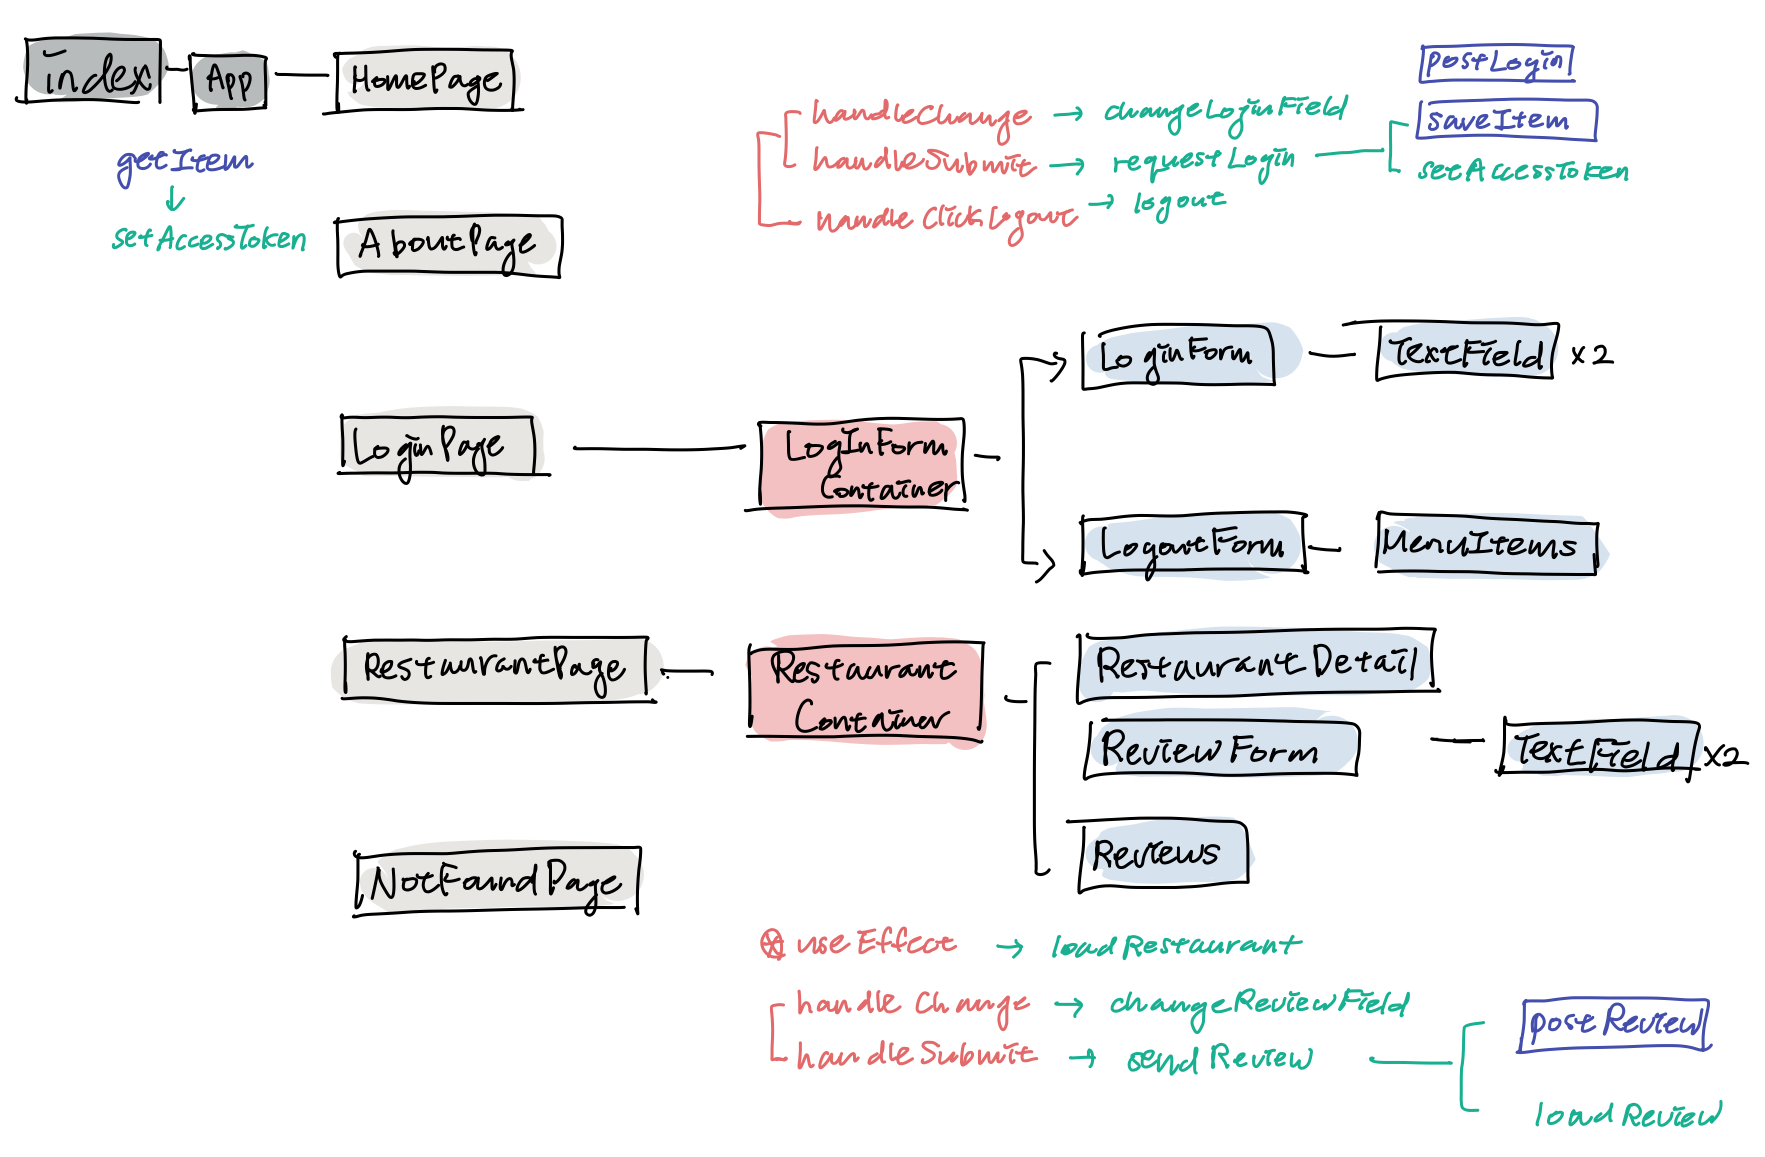 index
App
HomePage
getItem
↓
setAccessToken
AboutPage
handleChange → changeLoginField
handleSubmit → requestLogin
handleClickLogout → logout
postLogin
saveItem
setAccessToken
LoginPage
LogInForm
Container
LoginForm
TextField x2
LogoutForm
MenuItems
RestaurantPage
Restaurant
Container
RestaurantDetail
ReviewForm
TextField x2
Reviews
NotFoundPage
useEffect → loadRestaurant
handleChange → changeReviewField
handleSubmit → sendReview
postReview
loadReview